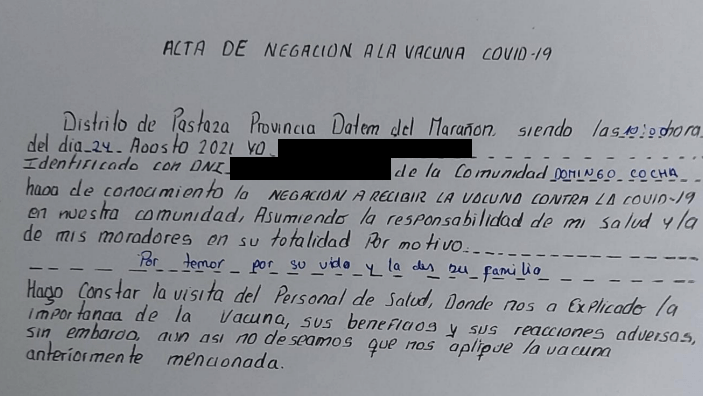 ACTA DE NEGACION A LA VACUNA COVID-19
Distrito de Pastaza Provincia Datem del Marañon, siendo las 10:00 hora
del dia 24 Agosto 2021 YO
Identificado con DNI de la Comunidad DOMINGO COCHA
haga de conocimiento la NEGACION A RECIBIR LA VACUNO CONTRA LA COVID-19
en nuestra comunidad, Asumiendo la responsabilidad de mi Salud y la
de mis moradores en su totalidad Por motivo.
Por temor por su vida y la de su familia
Hago Constar la visita del Personal de Salud, Donde nos a Explicado la
importancia de la Vacuna, sus beneficios y sus reacciones adversas,
sin embargo, aun asi no deseamos que nos aplique la vacuna
anteriormente mencionada.